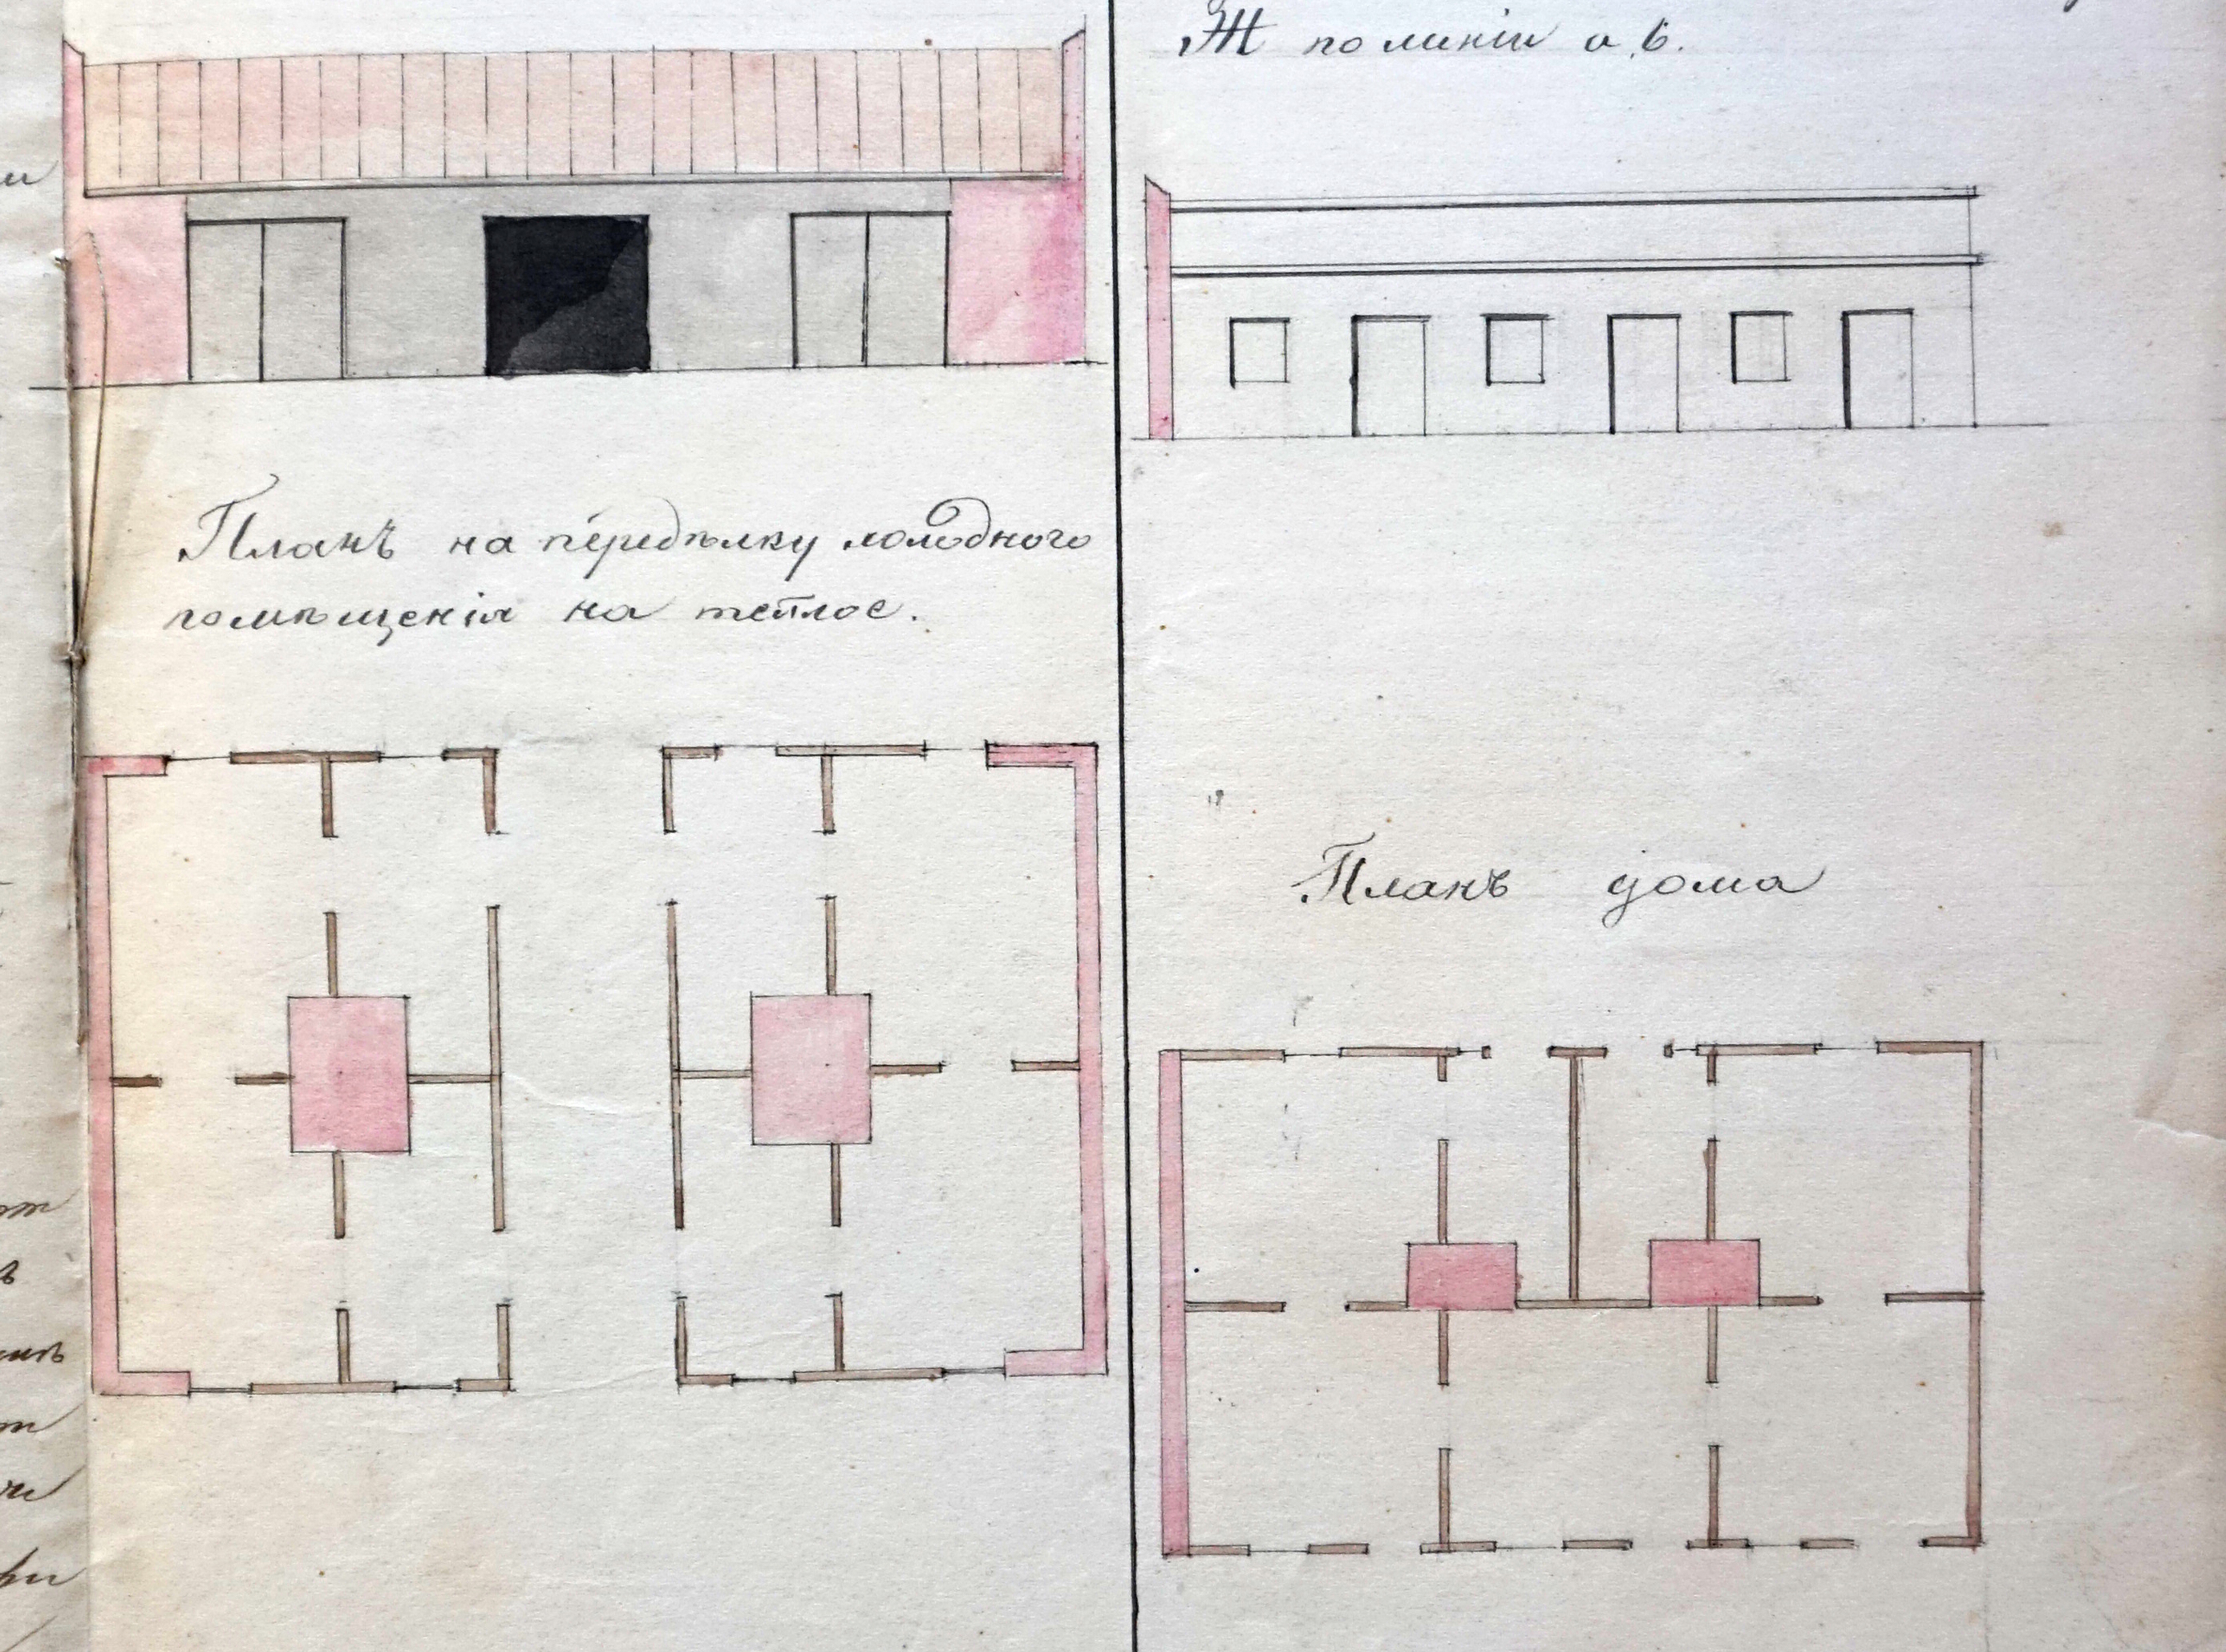 Ж по линіи а, б.
Планъ на передѣлку холоднаго
помѣщенія на теплое.
Планъ дома